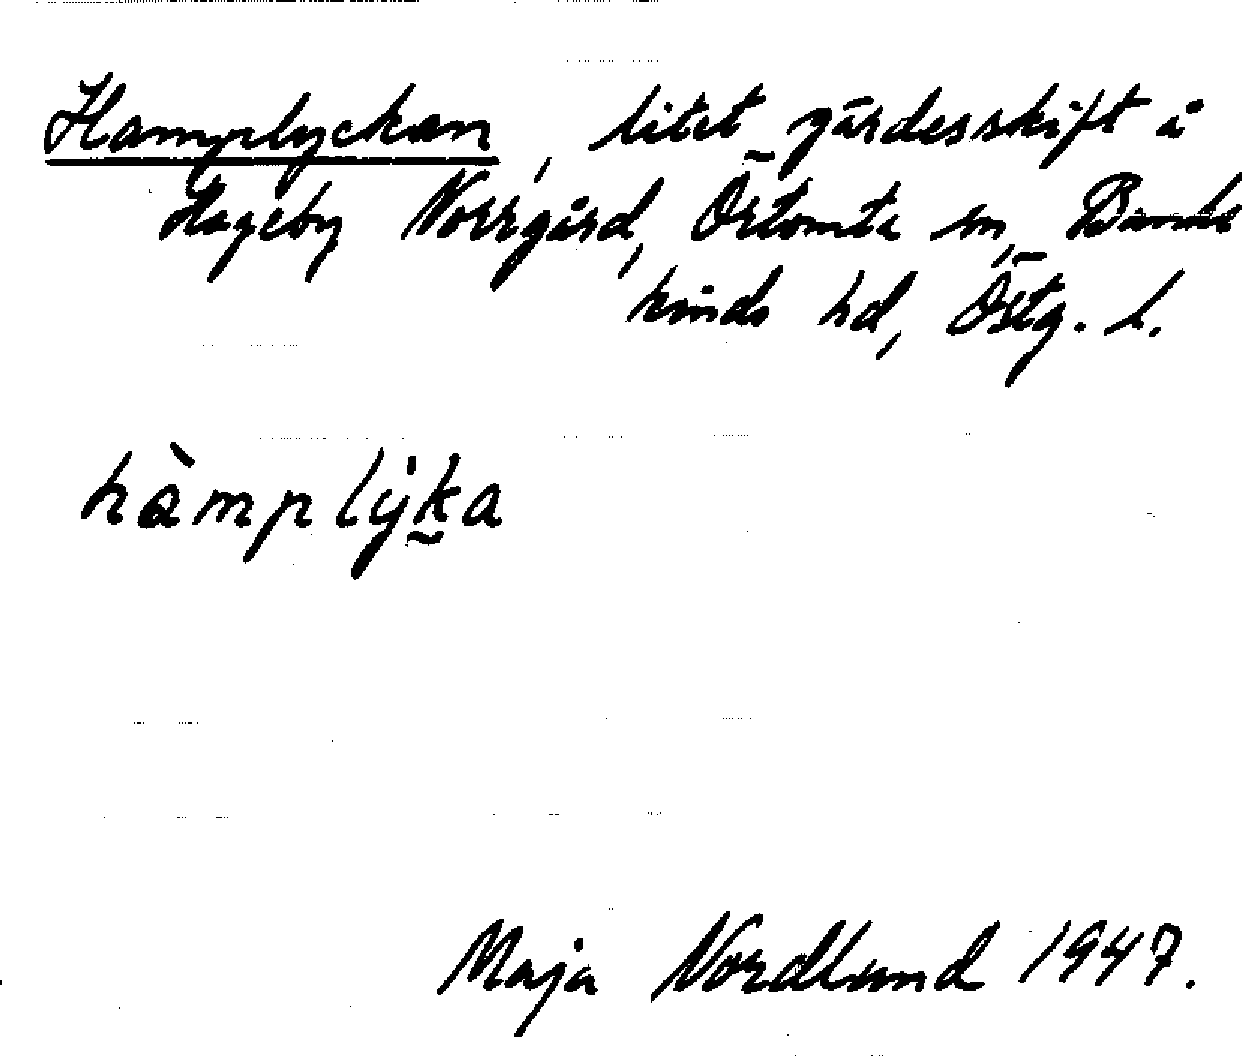 Hamplyckan, litet gärdesskift å
Hageby Norrgård, Örtomta sn, Bank-
kinds hd, Östg. l.
hàmplẏk̰a
Maja Nordlund 1947.